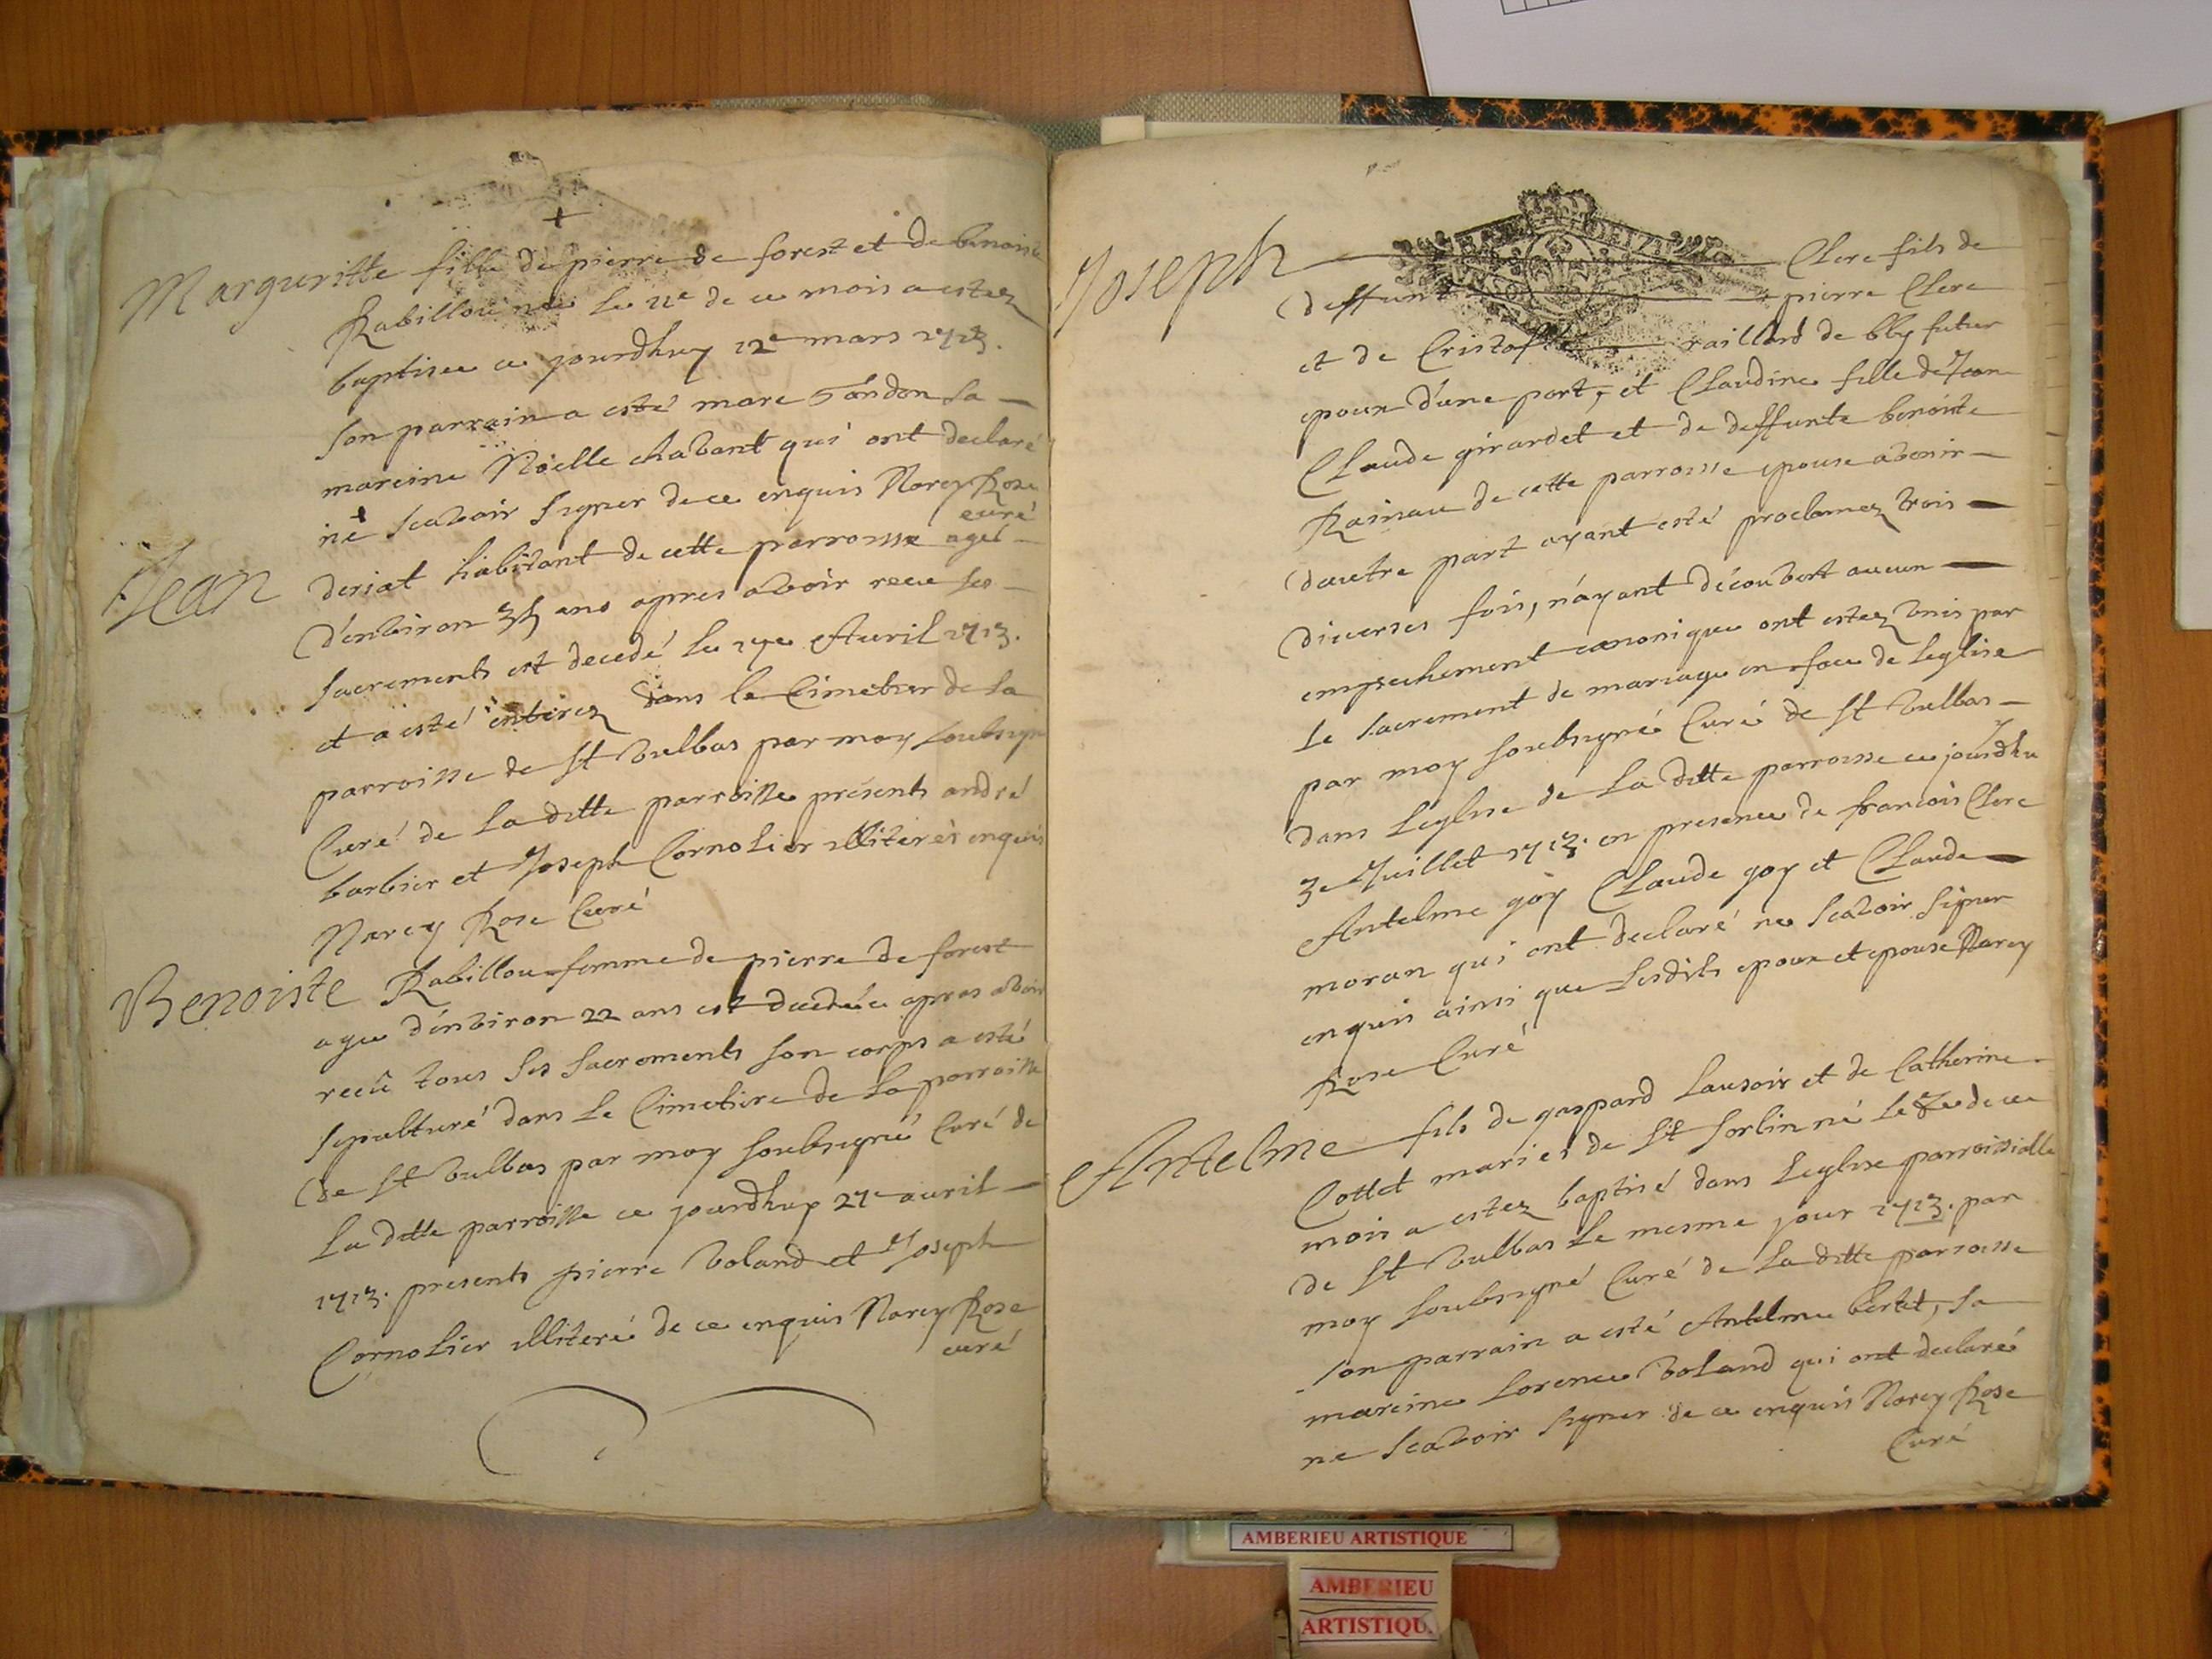 Marguritte fille de pierre de forest et de benoiste
Rabillou née le 11e de ce mois a estez
baptisee ce jourdhuy 12e mars 1713.
son parrain a esté marc Tondon sa
mareine Noëlle chavant qui ont declaré
ne scavoir signer de ce enquis Narcy Rose
curé
Jean deriat habitant de cette parroisse agé
d'environ 35 ans apres avoir receu ses
sacrements est decedé le 17e Auril 1713.
et a esté enterez dans le Cimetier de la
parroisse de St Vulbas par moy soubsigné
Curé de la ditte parroisse présents andré
barbier et Joseph Cornolier illiterés enquis
Narcy Rose Curé
Benoiste Rabillou femme de pierre de forest
agee d'environ 22 ans est decedée apras avoir
reçu tous ses sacrements son corps a esté
sepulturé dans le Cimetiere de la parroisse
de St Vulbas par moy soubsigné Curé de
la ditte parroisse ce jourdhuy 27e auril
1713. presents pierre Voland et Joseph
Cornolier illiteré de ce enquis Narcy Rose
curé
Joseph Clerc fils de
deffunt pierre Clerc
et de Cristofle raillard de bly futur
epoux d'une part, et Claudine fille de Jean
Claude girardet et de deffunte benoiste
Rainau de cette parroisse epouse avenir
dautre part ayant esté proclamez trois
diverses fois, n'ayant découvert aucun
empechement canonique ont estez unis par
le sacrement de mariage en face de leglise
par moy soubsigné Curé de St Vulbas
dans leglise de la ditte parroisse ce jourdhu
3e Juillet 1713. en presence de françois Clerc
Antelme goy Claude goy et Claude
moran qui ont declaré ne scavoir signer
enquis ainsi que lesdits epoux et epouse Narcy
Rose Curé
Antelme fils de gaspard Lausoir et de Catherine
Cottet mariés de St Sorlin né le de ce
mois a estez baptisé dans leglise parroissialle
de St Vulbas le mesme jour 1713. par
moy soubsigné Curé de la ditte parroisse
son parrain a esté Antelme bertet, sa
mareine Lorence Voland qui ont declaré
ne scavoir signer de ce enquis Narcy Rose
Curé
AMBERIEU ARTISTIQUE
AMBERIEU
ARTISTIQU